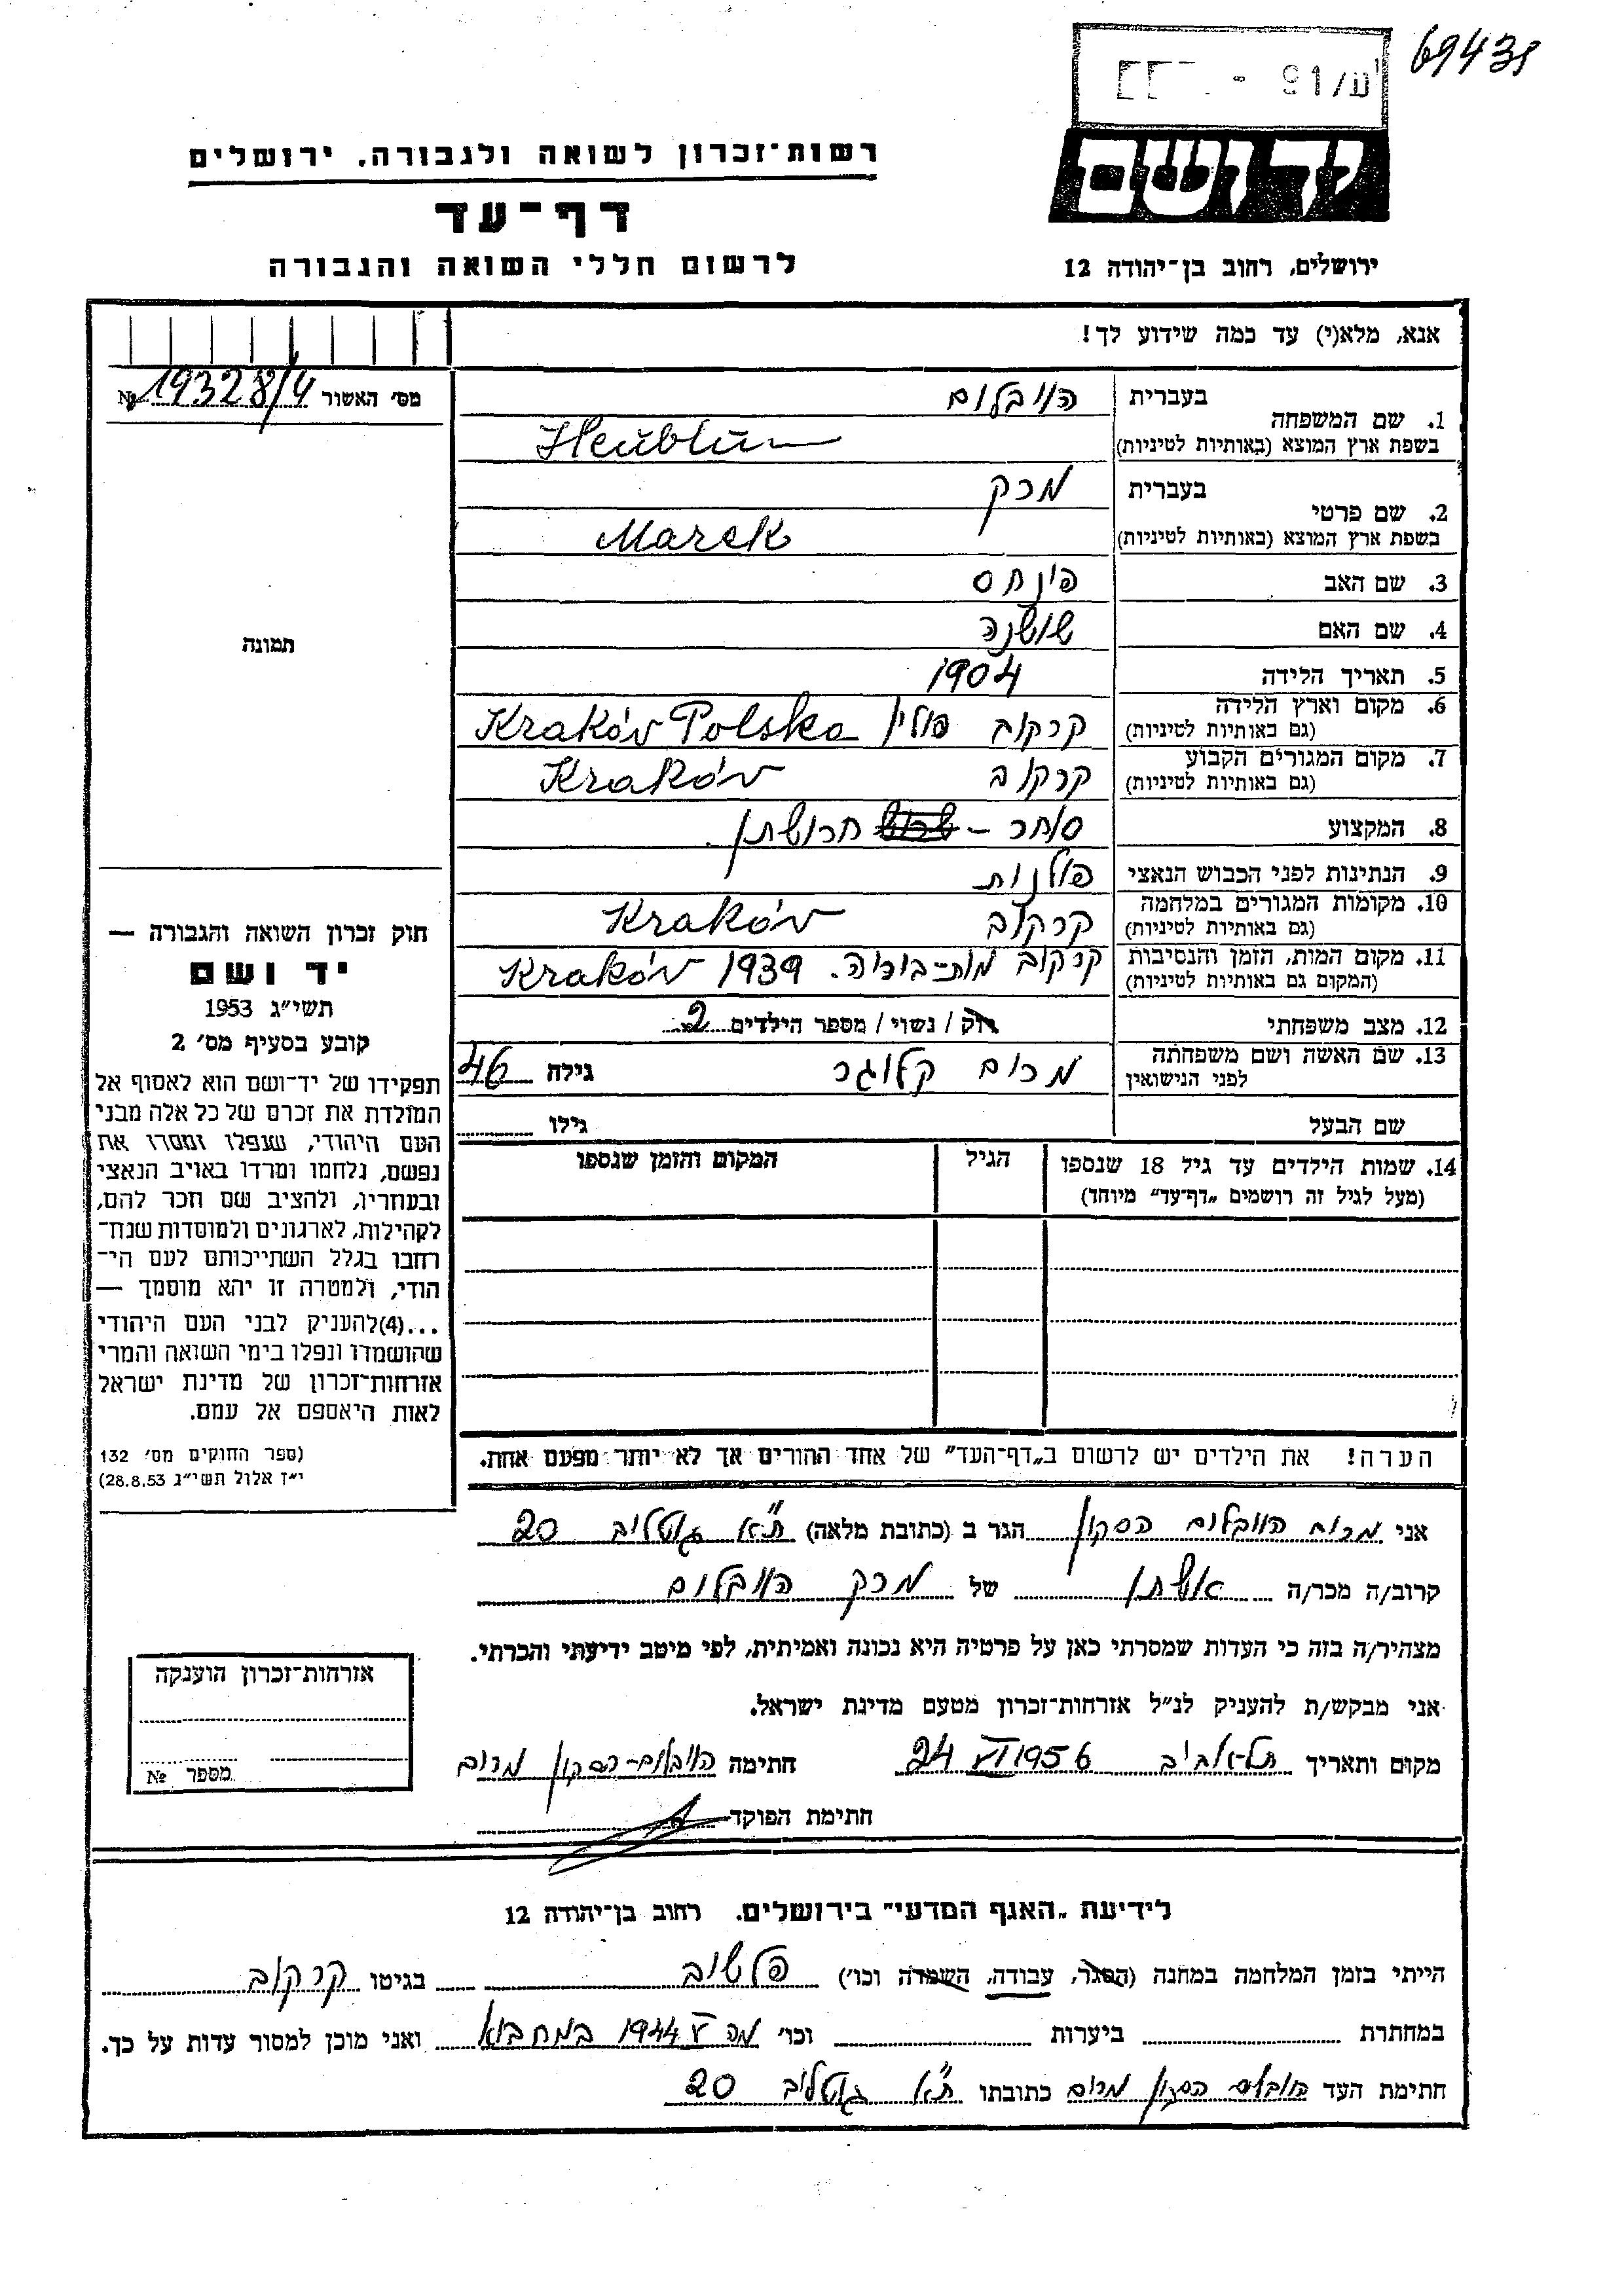 69439
ע/91 -
יד ושם
רשות־זכרון לשואה ולגבורה, ירושלים
דף־עד
ירושלים, רחוב בן־יהודה 12
לרשום חללי השואה והגבורה
אנא, מלא(י) עד כמה שידוע לך!
מס׳ האשור 19328/4 №
1. שם המשפחה
בעברית הויבלום
בשפת ארץ המוצא (באותיות לטיניות) Heublum
2. שם פרטי
בעברית מרק
בשפת ארץ המוצא (באותיות לטיניות) Marek
3. שם האב פינחס
4. שם האם שושנה
5. תאריך הלידה 1904
6. מקום וארץ הלידה
(גם באותיות לטיניות) קרקוב פולין Kraków Polska
7. מקום המגורים הקבוע
(גם באותיות לטיניות) קרקוב Kraków
8. המקצוע סוחר – חרושתן.
9. הנתינות לפני הכבוש הנאצי פולנית
10. מקומות המגורים במלחמה
(גם באותיות לטיניות) קרקוב Kraków
11. מקום המות, הזמן והנסיבות
(המקום גם באותיות לטיניות) קרקוב 1939 Kraków
12. מצב משפחתי רוק / נשוי / מספר הילדים 2
13. שם האשה ושם משפחתה
לפני הנישואין מרים קלוגר גילה 46
שם הבעל גילו
14. שמות הילדים עד גיל 18 שנספו
(מעל לגיל זה רושמים „דף־עד״ מיוחד)
הגיל
המקום והזמן שנספו
הערה! את הילדים יש לרשום ב„דף־העד״ של אחד ההורים אך לא יותר מפעם אחת.
תמונה
חוק זכרון השואה והגבורה —
יד ושם
תשי״ג 1953
קובע בסעיף מס׳ 2
תפקידו של יד־ושם הוא לאסוף אל
המולדת את זכרם של כל אלה מבני
העם היהודי, שנפלו ומסרו את
נפשם, נלחמו ומרדו באויב הנאצי
ובעוזריו, ולהציב שם וזכר להם,
לקהילות, לארגונים ולמוסדות שנח־
רבו בגלל השתייכותם לעם הי־
הודי, ולמטרה זו יהא מוסמך —
...(4) להעניק לבני העם היהודי
שהושמדו ונפלו בימי השואה והמרי
אזרחות־זכרון של מדינת ישראל
לאות היאספם אל עמם.
(ספר החוקים מס׳ 132
י״ז אלול תשי״ג 28.8.53)
אני מרים הויבלום הסקון הגר ב (כתובת מלאה) ת״א גוטליב 20
קרוב/ה מכר/ה אשתו של מרק הויבלום
מצהיר/ה בזה כי העדות שמסרתי כאן על פרטיה היא נכונה ואמיתית, לפי מיטב ידיעתי והכרתי.
אני מבקש/ת להעניק לנ״ל אזרחות־זכרון מטעם מדינת ישראל.
מקום ותאריך תל־אביב 24 VI 1956 חתימה הויבלום־הסקון מרים
חתימת הפוקד
אזרחות־זכרון הוענקה
מספר №
לידיעת „האגף המדעי״ בירושלים, רחוב בן־יהודה 12
הייתי בזמן המלחמה במחנה (הסגר, עבודה, השמדה וכו׳) פלשוב בגיטו קרקוב
במחתרת ביערות וכו׳ מה V 1944 במחבוא ואני מוכן למסור עדות על כך.
חתימת העד הויבלום הסקון מרים כתובתו ת״א גוטליב 20